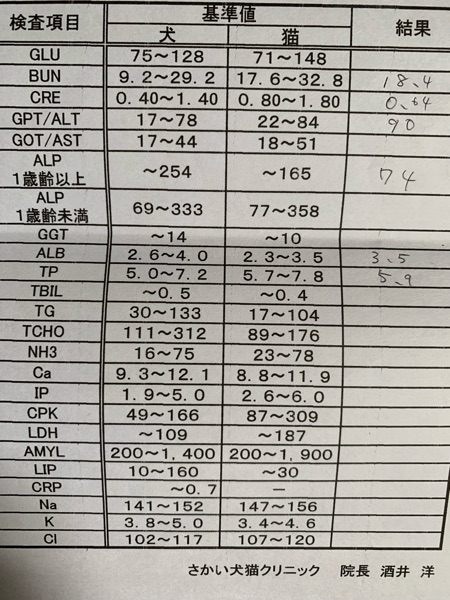 検査項目 基準値 結果
犬 猫
GLU 75～128 71～148
BUN 9.2～29.2 17.6～32.8 18.4
CRE 0.40～1.40 0.80～1.80 0.64
GPT/ALT 17～78 22～84 90
GOT/AST 17～44 18～51
ALP
1歳齢以上 ～254 ～165 74
ALP
1歳齢未満 69～333 77～358
GGT ～14 ～10
ALB 2.6～4.0 2.3～3.5 3.5
TP 5.0～7.2 5.7～7.8 5.9
TBIL ～0.5 ～0.4
TG 30～133 17～104
TCHO 111～312 89～176
NH3 16～75 23～78
Ca 9.3～12.1 8.8～11.9
IP 1.9～5.0 2.6～6.0
CPK 49～166 87～309
LDH ～109 ～187
AMYL 200～1,400 200～1,900
LIP 10～160 ～30
CRP ～0.7 －
Na 141～152 147～156
K 3.8～5.0 3.4～4.6
Cl 102～117 107～120
さかい犬猫クリニック 院長 酒井 洋